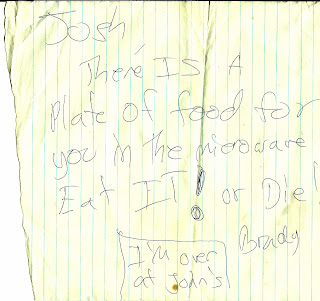 Josh
There IS A
Plate of food for
you in the microwave
Eat IT! or Die!
Brady
I'm over
at John's